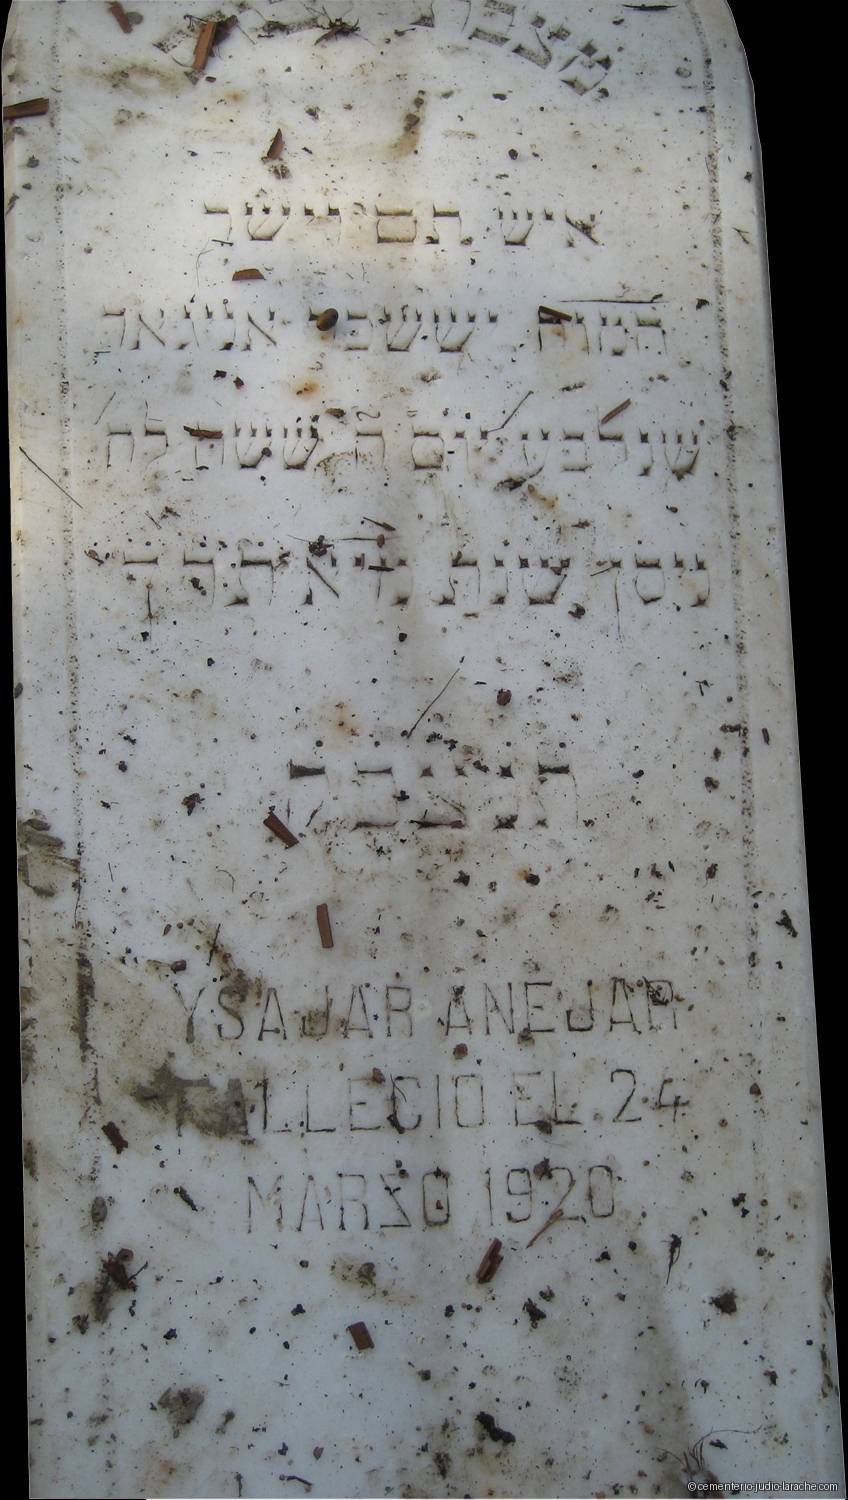 מצבת
איש תם וישר
יששכר אניגאר
שנלבע יום ה ששה לח
ניסן שנת
תנצבה
YSAJAR ANEJAR
FALLECIO EL 24
MARZO 1920
© cementerio-judio-larache.com